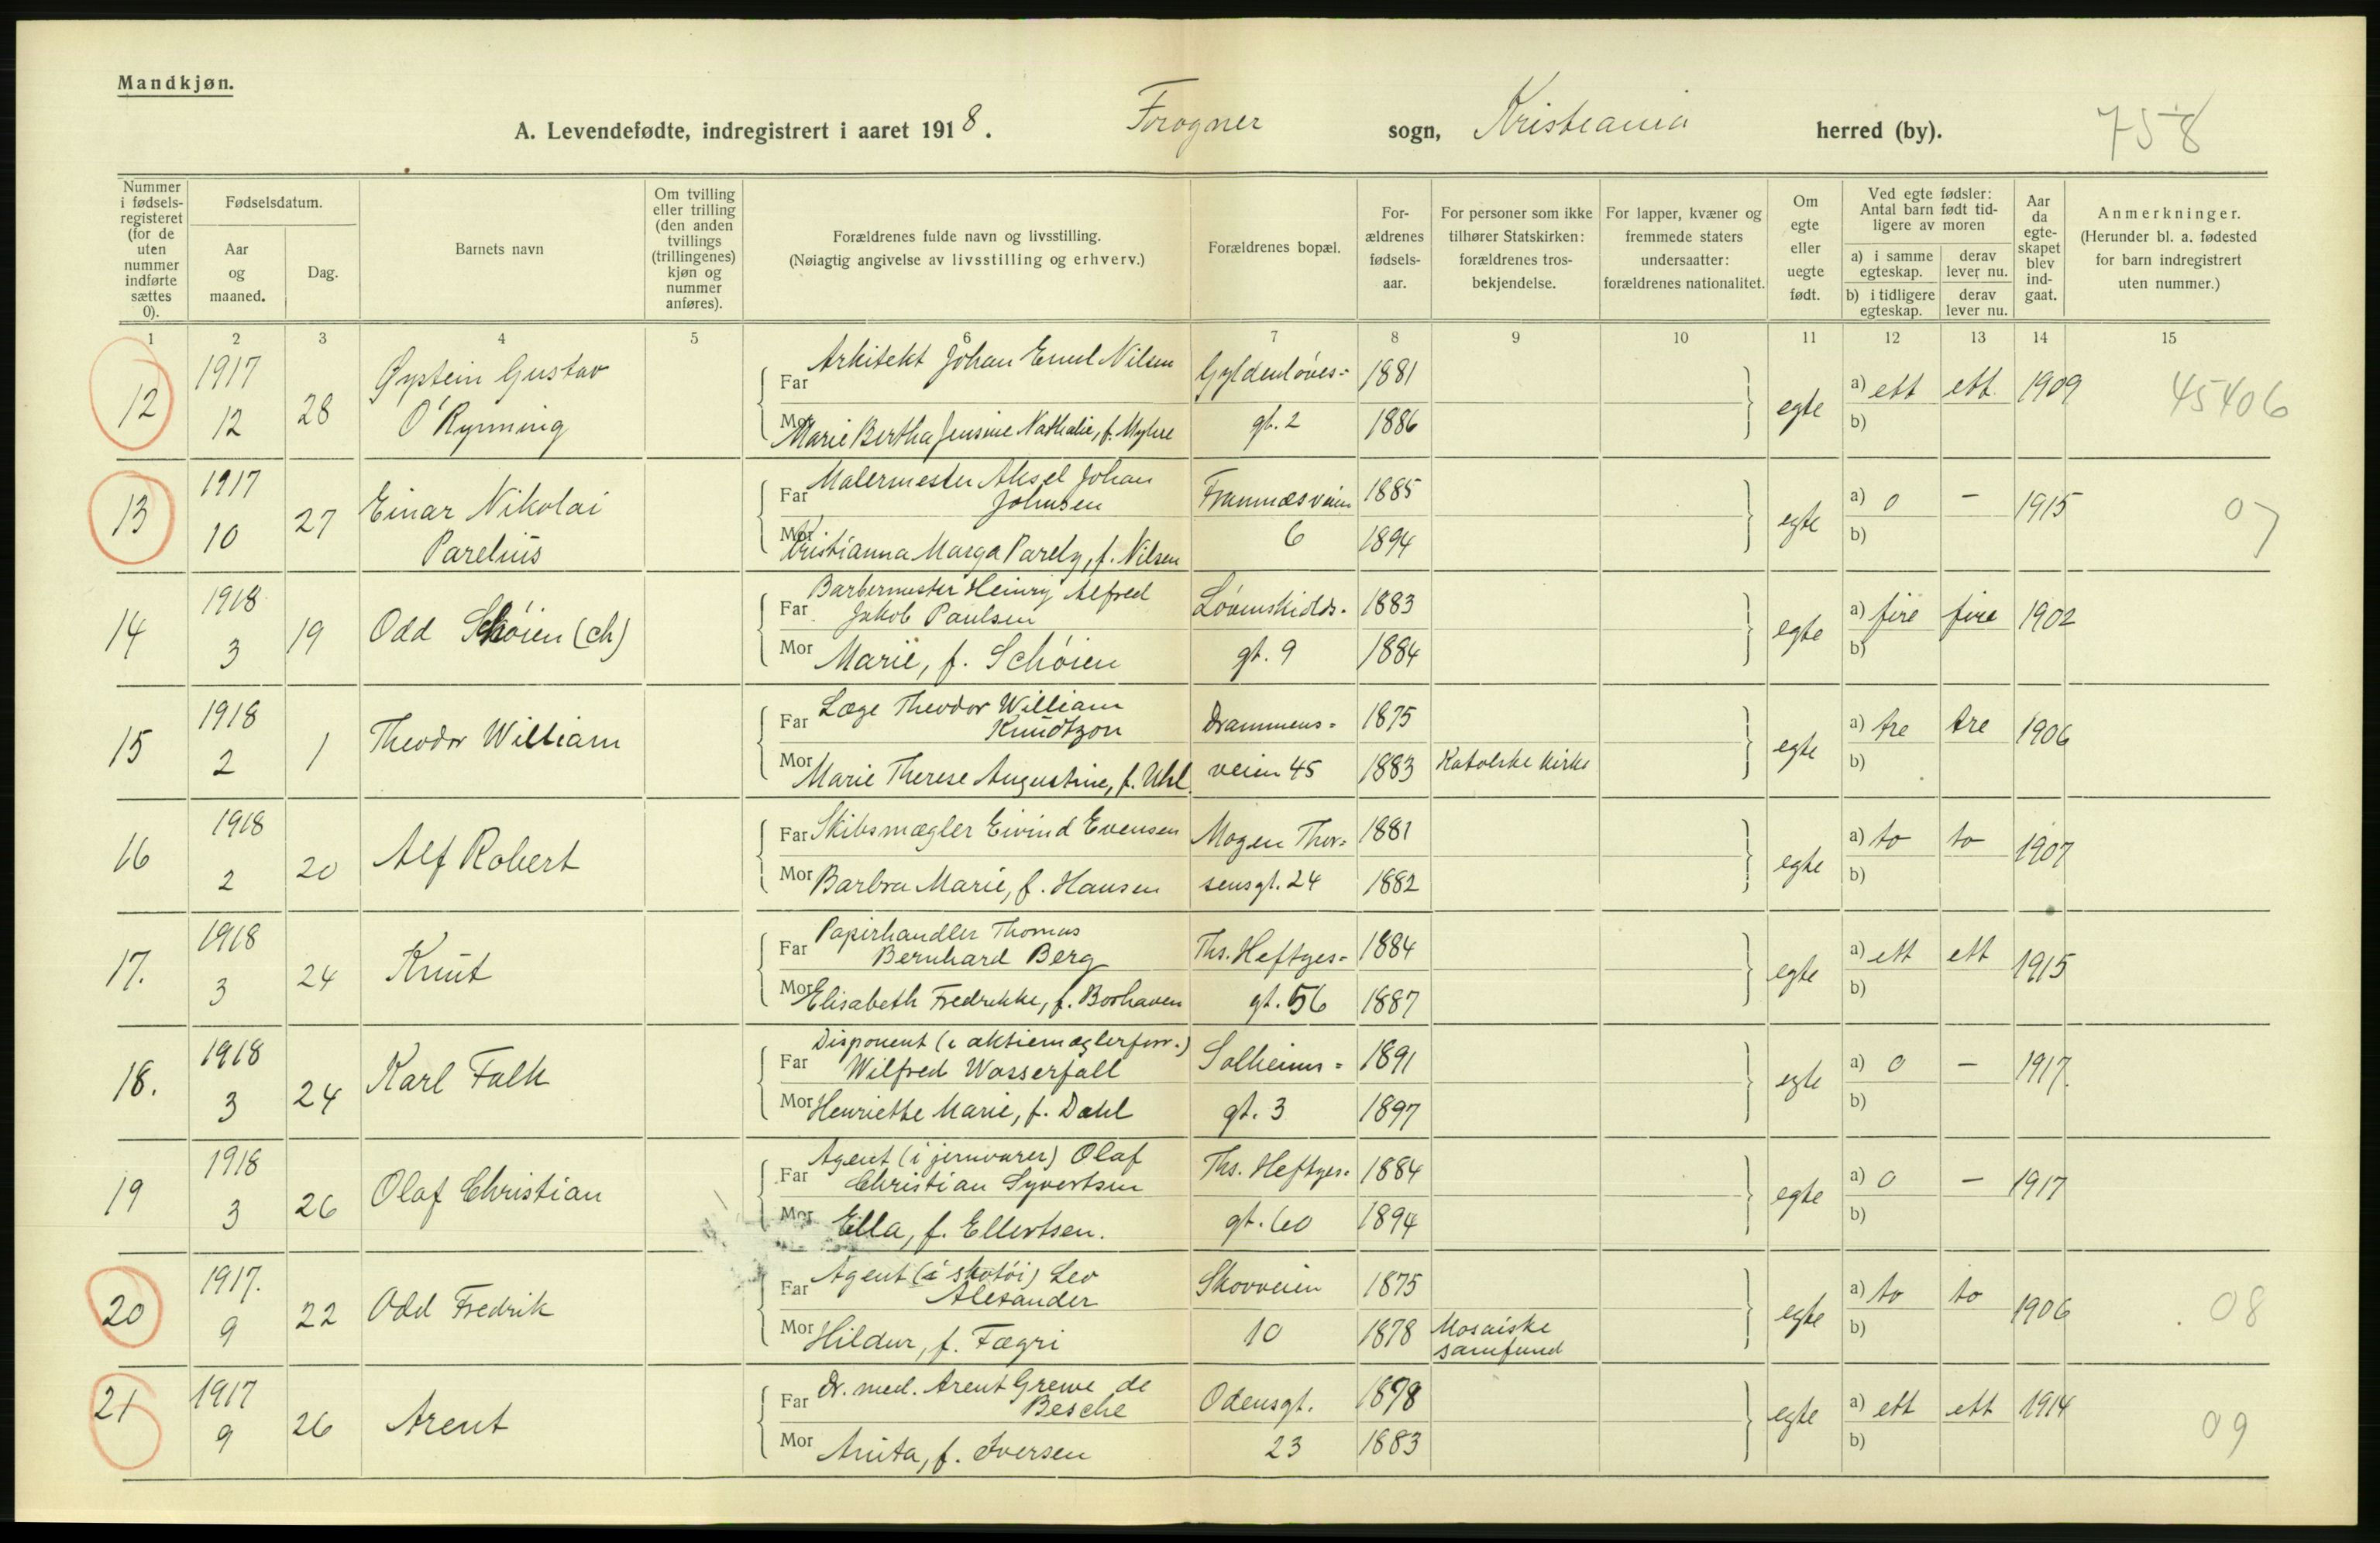 Mandkjøn.
A. Levendefødte, indregistrert i aaret 1918. Frogner sogn, Kristiania herred (by). 758
Nummer i fødsels-registeret (for de uten nummer indførte sættes 0).
Fødselsdatum.
Aar og maaned.
Dag.
Barnets navn
Om tvilling eller trilling (den anden tvillings (trillingenes) kjøn og nummer anføres).
Forældrenes fulde navn og livsstilling.
(Nøiagtig angivelse av livsstilling og erhverv.)
Forældrenes bopæl.
For-ældrenes fødsels-aar.
For personer som ikke tilhører Statskirken: forældrenes tros-bekjendelse.
For lapper, kvæner og fremmede staters undersaatter: forældrenes nationalitet.
Om egte eller uegte født.
Ved egte fødsler: Antal barn født tid-ligere av moren
a) i samme egteskap. derav lever nu.
b) i tidligere egteskap. derav lever nu.
Aar da egte-skapet blev ind-gaat.
Anmerkninger.
(Herunder bl. a. fødested for barn indregistrert uten nummer.)
1 2 3 4 5 6 7 8 9 10 11 12 13 14 15
12 1917 12 28 Øystein Gustav O'Rynning
Far Arkitekt Johan Emil Nilsen Gyldenløves= 1881 egte a) ett ett. 1909 45406
Mor Marie Bertha Jensine Nathalie, f. Myhre gt. 2 1886 b)
13 1917 10 27 Einar Nikolai Parelius
Far Malermester Aksel Johan Johnsen Framnæsveien 1885 egte a) 0 – 1915 07
Mor Kristianna Marga Parely, f. Nilsen 6 1894 b)
14 1918 3 19 Odd Schöien (ch)
Far Barbermester Heinry Alfred Jakob Paulsen Løvenskiolds. 1883 egte a) fire fire 1902
Mor Marie, f. Schöien gt. 9 1884 b)
15 1918 2 1 Theodor William
Far Læge Theodor William Knudtzon Drammens= 1875 egte a) tre tre 1906
Mor Marie Therese Augustine, f. Uhl veien 45 1883 Katolske kirke b)
16 1918 2 20 Alf Robert
Far Skibsmægler Eivind Evensen Mogen Thor= 1881 egte a) to to 1907
Mor Barbra Marie, f. Hansen sensgt. 24 1882 b)
17. 1918 3 24 Knut
Far Papirhandler Thomas Bernhard Berg Ths. Heftyes= 1884 egte a) ett ett 1915
Mor Elisabeth Fredrikke, f. Borhaven gt. 56 1887 b)
18. 1918 3 24 Karl Falk
Far Disponent (i aktiemæglerforr.) Wilfred Wasserfall Solheims= 1891 egte a) 0 – 1917.
Mor Henriette Marie, f. Dahl gt. 3 1897 b)
19 1918 3 26 Olaf Christian
Far Agent (i jernvarer) Olaf Christian Syvertsen Ths. Heftyes. 1884 egte a) 0 – 1917
Mor Ella, f. Ellertsen. gt. 60 1894 b)
20 1917. 9 22 Odd Fredrik
Far Agent (i skotöi) Leo Alexander Skovveien 1875 egte a) to to 1906 08
Mor Hildur, f. Fægri 10 1878 Mosaiske samfund b)
21 1917 9 26 Arent
Far Dr. med. Arent Greve de Besche Odensgt. 1878 egte a) ett ett 1914 09
Mor Anita, f. Iversen 23 1883 b)